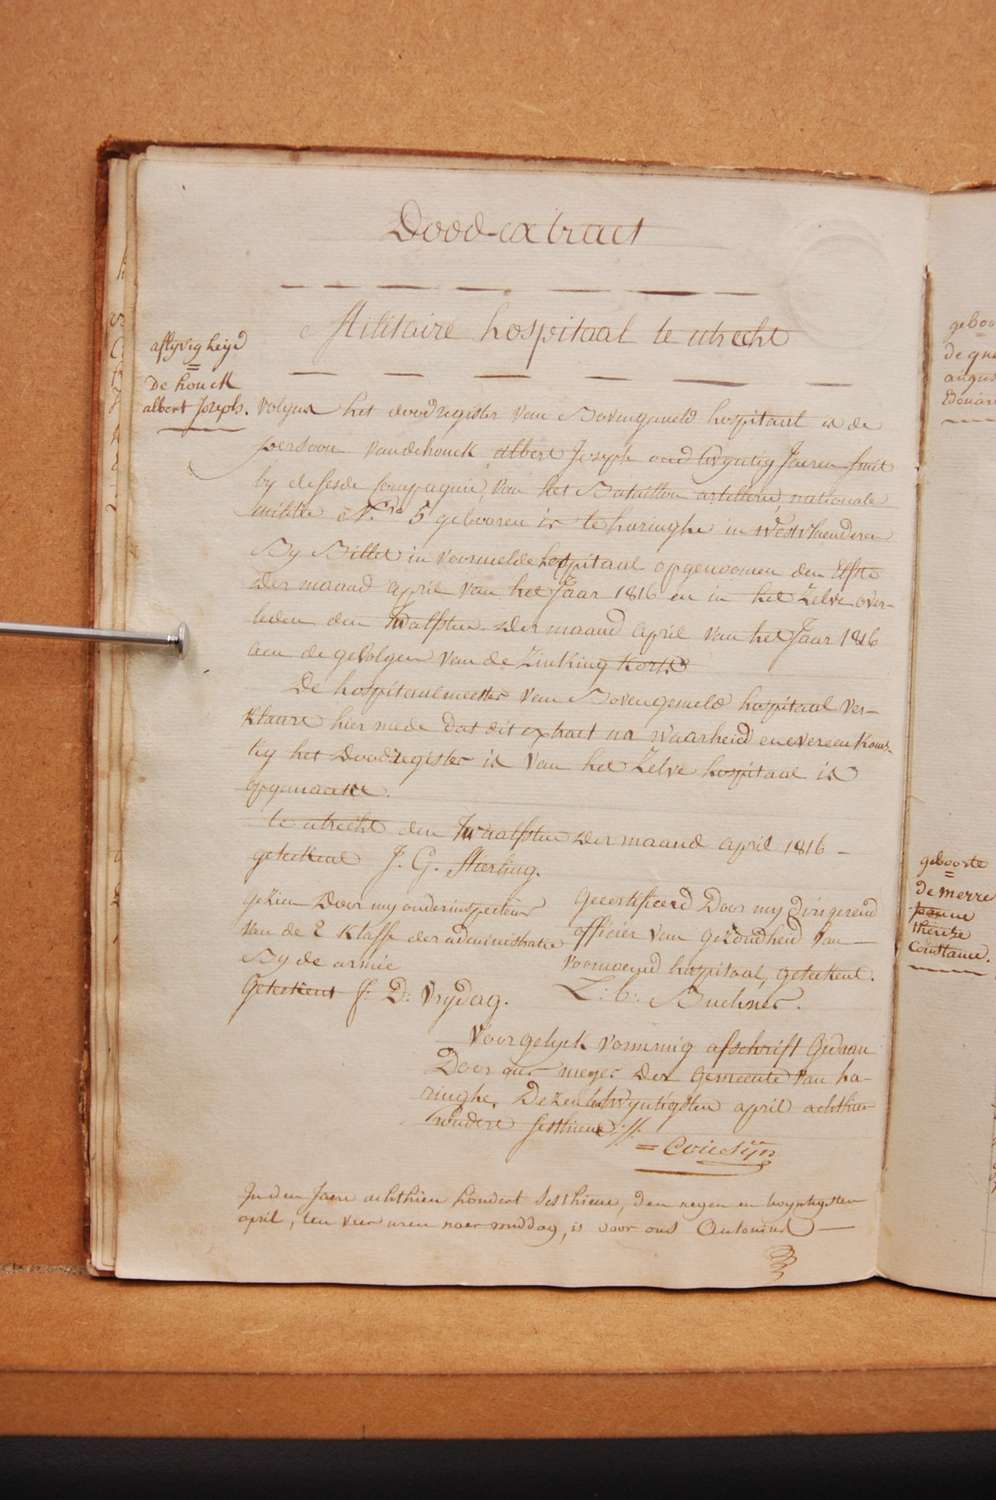 Dood-extract
Militaire hospitaal te utrecht
aflyvigheyd
De houck
albert Joseph.
volgens het doodregister van Bovengemeld hospitaal is de
persoon vandehouck albert Joseph oud twyntig Jaeren fusit
by de sesde Compagnie, van het Bataillon artillerie, nationale
militie N.ro 5 gebooren is te haringhe in westvlaenderen
By Billet in voormelde hospitaal opgenoomen den Elfste
der maand april van het Jaar 1816 en in het Zelve over-
leden den twalfsten der maand april van het Jaar 1816
aen de gevolgen van de Zinking Korts
De hospitaalmeester van Bovengemeld hospitaal ver-
Klaare hier mede dat dit extract na waarheid en overeen Koms-
tig het Doodregister is van het Zelve hospitaal is
opgemaakt.
te utrecht den twaalfsten der maand april 1816 -
geteekend J. G. Sterling.
gezien Door my onderinspecteur
van de 2 Klasse der administratie
By de armée
Geteekent J. D: Vrydag.
Gecertificeerd Door my dirigerend
officier van gezondheid van
voornoemd hospitaal, geteekent.
L: C: Buchner.
Voor gelyck vormmig afschrift Gedaan
Door ons meyer der Gemeente van ha-
ringhe, Dezen twyntigsten april achthien
hondert sesthiene ://.
= Cousyn
In den Jaere achthien hondert sesthiene, den negen en twyntigsten
april, ten vier uren naer middag, is voor ons Antonius
geboo
de que
augus
Edouar
geboorte
=
de merre
jeanne
thérèze
Constance.